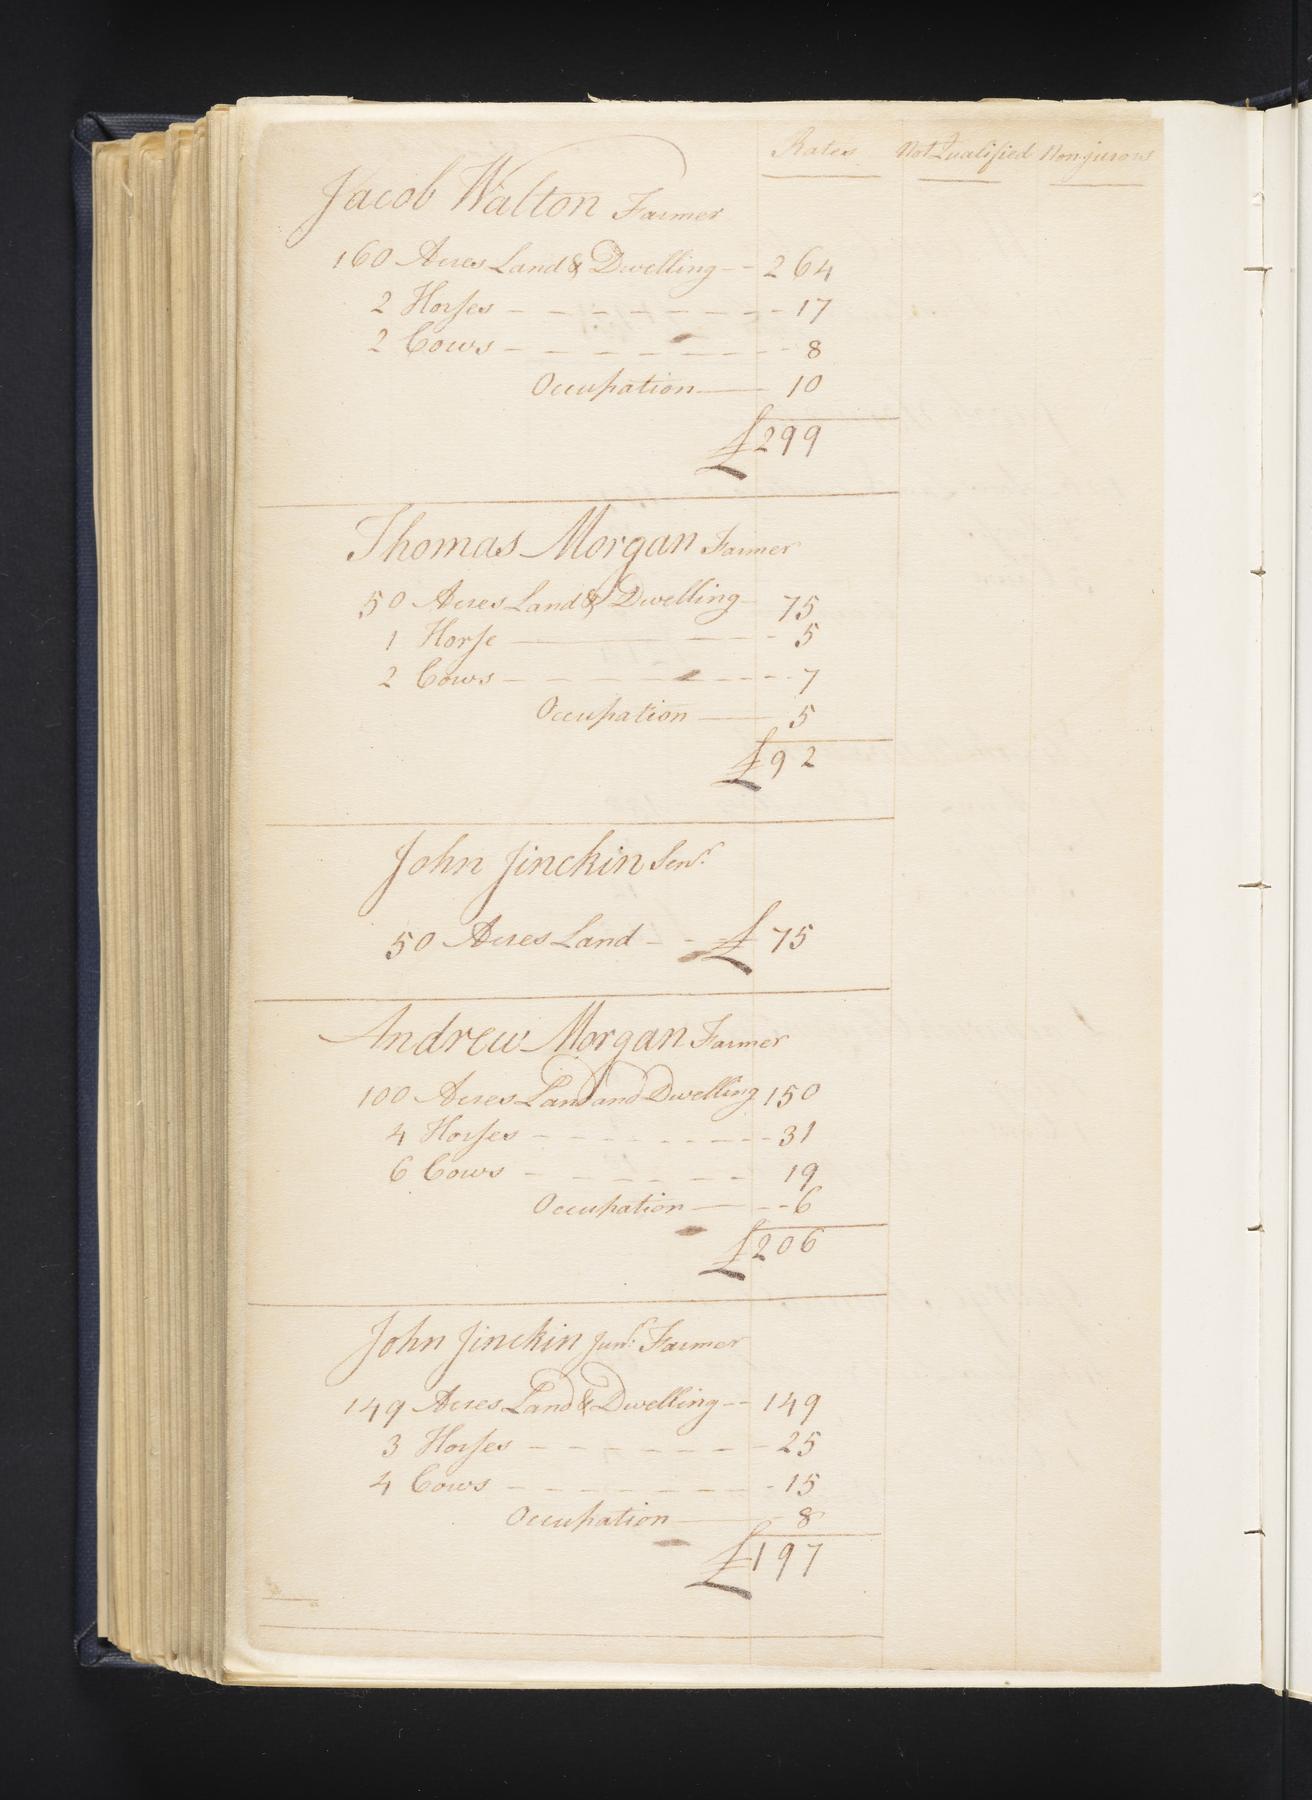 Rates Not Qualified Nonjurors
Jacob Walton Farmer
160 Acres Land & Dwelling -- 264
2 Horses - - - - - - - - 17
2 Cows - - - - - - - 8
Occupation — 10
£299
Thomas Morgan Farmer
50 Acres Land & Dwelling - 75
1 Horse — - - - 5
2 Cows - - - - - - - - 7
Occupation — 5
£92
John Jinckin Senr.
50 Acres Land - - £75
Andrew Morgan Farmer
100 Acres Land and Dwelling 150
4 Horses - - - - - - - - 31
6 Cows - - - - - - 19
Occupation — -- 6
£206
John Jinckin Junr. Farmer
149 Acres Land & Dwelling -- 149
3 Horses - - - - - - - 25
4 Cows - - - - - - - - 15
Occupation — 8
£197